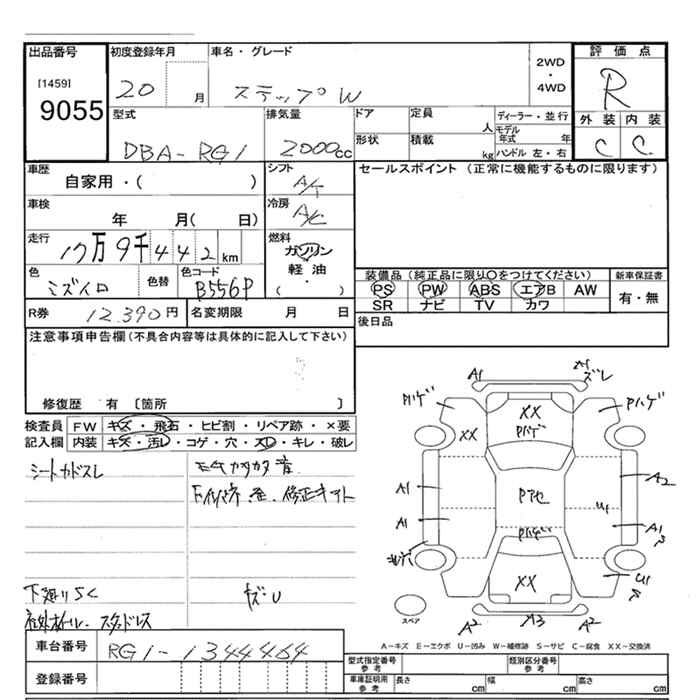 出品番号
[1459]
9055
初度登録年月
20
月
車名・グレード
ステップW
2WD
・
4WD
評価点
R
外装 内装
C C
型式
DBA-RG1
排気量
2000cc
ドア
定員
人
形状
積載
kg
ディーラー・並行
モデル年式 年
ハンドル 左・右
車歴
自家用・( )
シフト
A/T
セールスポイント (正常に機能するものに限ります)
車検
年 月( 日)
冷房
A/C
走行
17万9千442km
燃料
ガソリン
軽油
・
( )
色
ミズイロ
色替
色コード
B556P
装備品(純正品に限り○をつけてください)
PS PW ABS エアB AW
SR ナビ TV カワ
新車保証書
有・無
R券
12,390円
名変期限 月 日
後日品
注意事項申告欄(不具合内容等は具体的に記入して下さい)
修復歴 有 〔箇所 〕
検査員
記入欄
FW キズ・飛石・ヒビ割・リペア跡・×要
内装 キズ・汚レ・コゲ・穴・スレ・キレ・破レ
シートカドスレ
下廻りS<
キズ・U
A1
ズレ
Pハゲ
Pハゲ
XX
Pハゲ
XX
A1
A1
P他
A2
U1
A1
Pハゲ
XX
U1
A2
A3
A2
スペア
A-キズ E-エクボ U-凹み W-補修跡 S-サビ C-腐食 XX-交換済
車台番号
RG1-1344464
登録番号
型式指定番号
参考
類別区分番号
参考
車庫証明用
参考
長さ cm
幅 cm
高さ cm